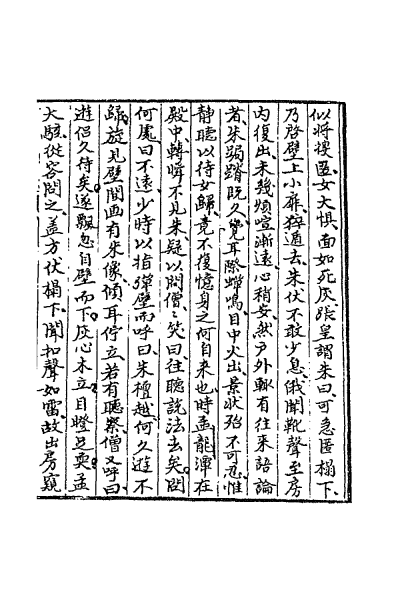 似将搜匿女大惧面如死灰張皇謂朱曰可急匿榻下
乃啓壁上小扉猝遁去朱伏不敢少息俄聞靴聲至房
内復出未幾煩喧漸遠心稍安然戶外輙有往來語論
者朱跼蹐既久覺耳際蟬鳴目中火出景狀殆不可忍惟
静聽以待女歸竟不復憶身之何自来也時孟龍潭在
殿中轉瞬不見朱疑以問僧〻笑曰往聽說法去矣問
何處曰不遠少時以指彈壁而呼曰朱檀越何久遊不
歸旋見壁間画有朱像傾耳佇立若有聽察僧又呼曰
遊侣久待矣遂飄忽自壁而下灰心木立目瞪足耎孟
大駭從容問之盖方伏榻下聞扣聲如雷故出房窺